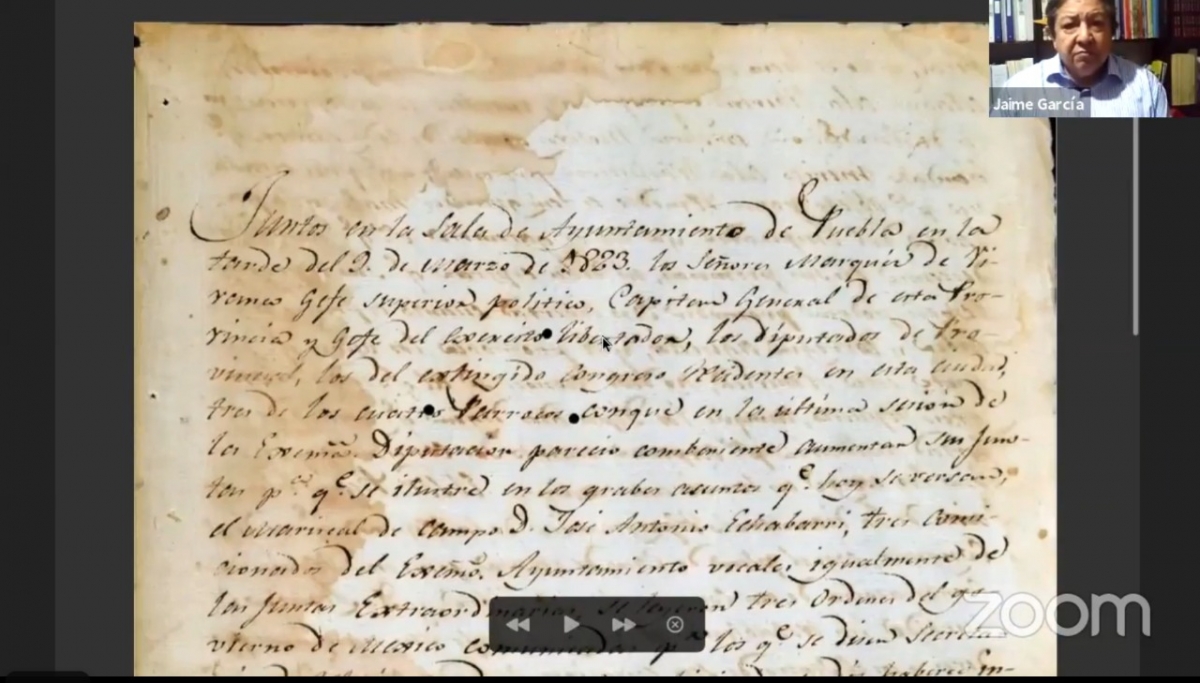 Jaime García
Juntos en la Sala de Ayuntamiento de Puebla en la
tarde del 9. de Marzo de 1823. los Señores Marques de Vi-
vanco Gefe superior politico, Capitan General de esta Pro-
vincia y Gefe del exercito libertador, los diputados de Pro-
vincial, los del extinguido Congreso recidentes en esta ciudad,
tres de los cuatro Parrocos conque en la última sesion de
la Exema. Diputacion parecio combeniente aumentar sus Jun-
tas pa. qe. se ilustre en los grabes asuntos qe. hoy se versan,
el Mariscal de campo D. José Antonio Echabarri, tres comi-
cionados del Exemo. Ayuntamiento vocales igualmente de
las Juntas Extraordinarias, se leyeron tres Ordenes del go-
vierno de Mexico comunicadas pr. los qe. se dicen Secreta-
haberse in-
zoom